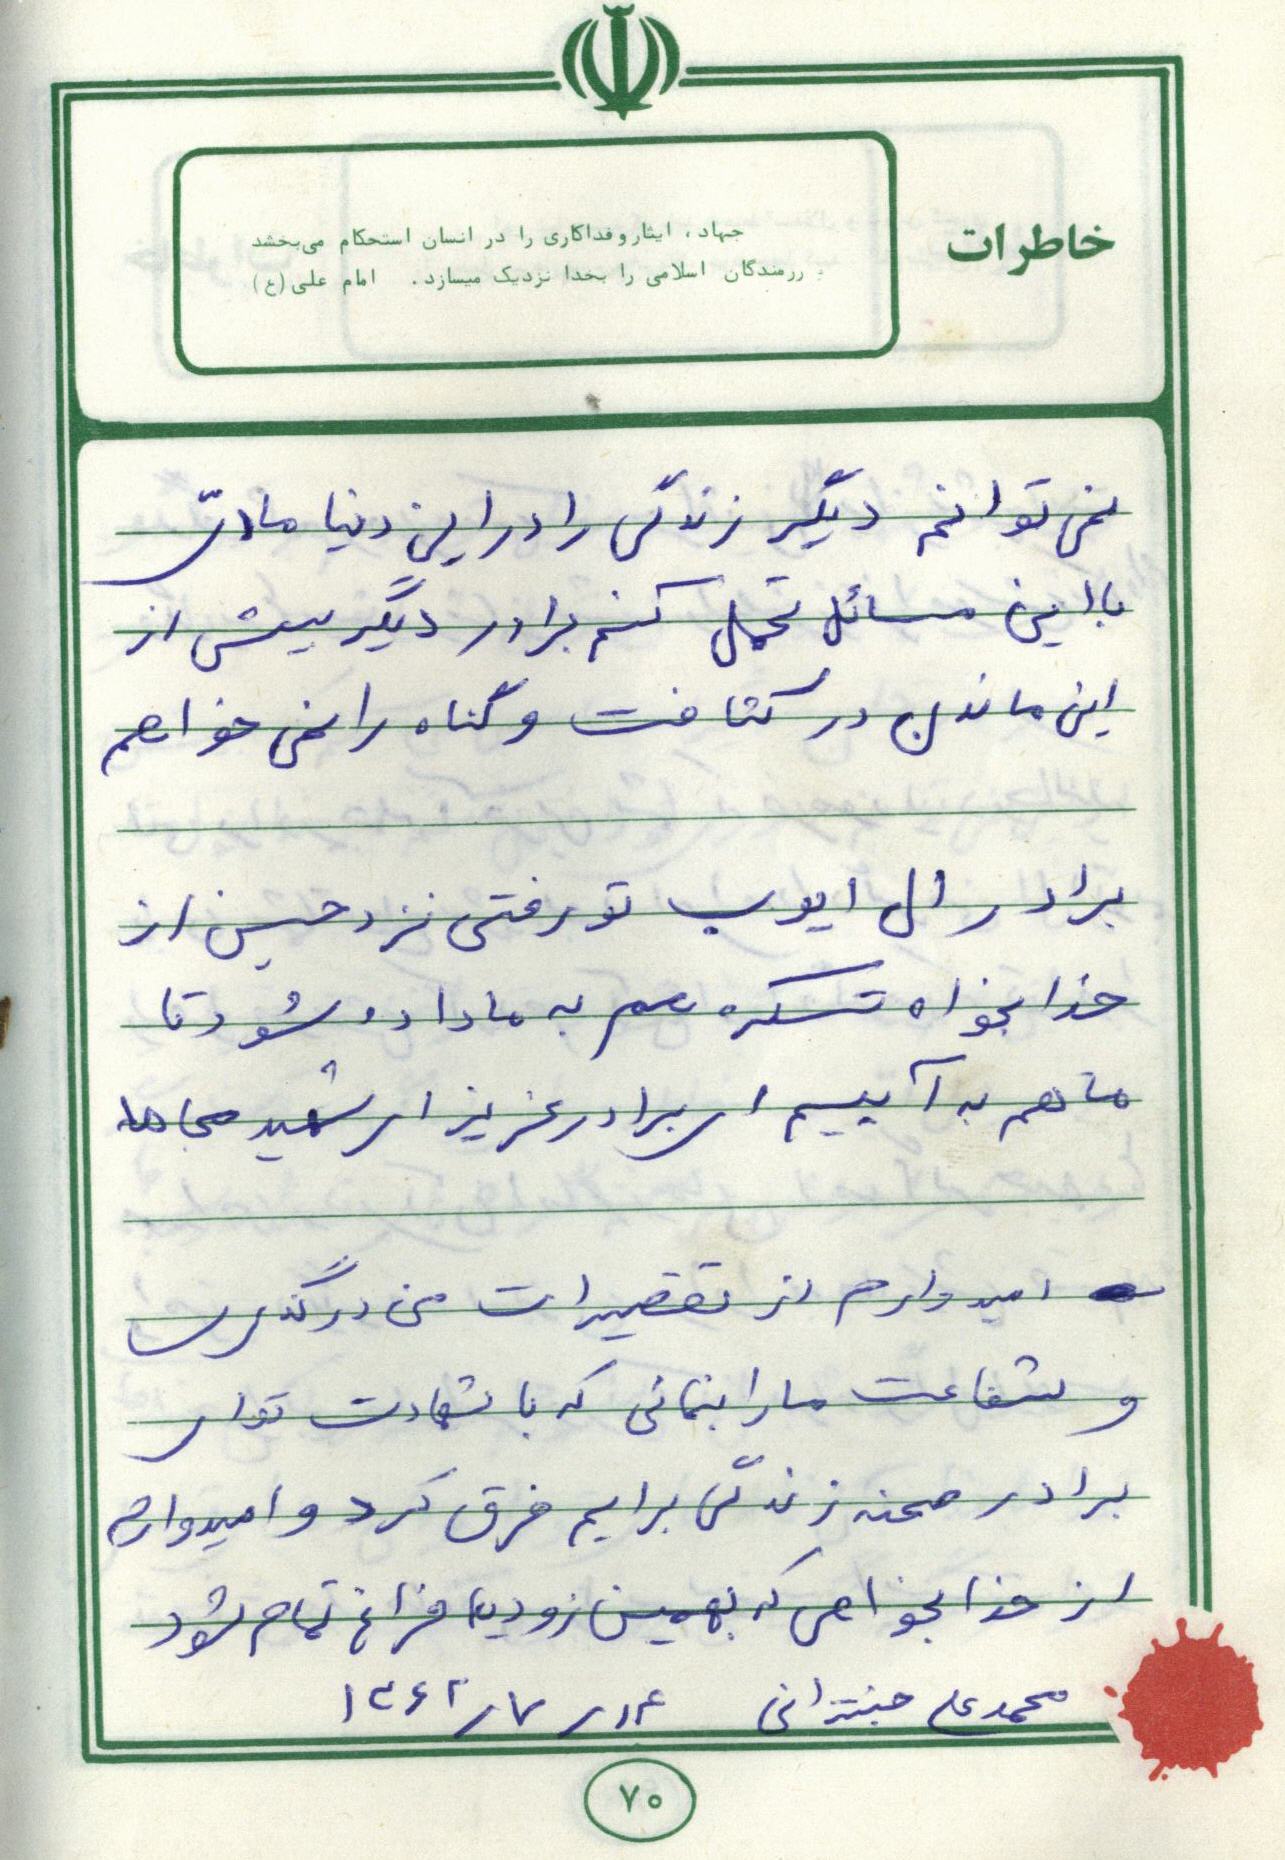 خاطرات
جهاد، ایثار و فداکاری را در انسان استحکام می‌بخشد
رزمندگان اسلامی را بخدا نزدیک میسازد. امام علی (ع)
نمی توانم دیگر زندگی را در این دنیا مادی
با این مسائل تحمل کنم برادر دیگر بیش از
این ماندن در کثافت و گناه را نمی خواهم
برادر ال ایوب تو رفتی نزد حسین از
خدا بخواه تسکره هم به ما داده شود تا
ما هم به آییم ای برادر عزیز ای شهید مجاهد
امیدوارم از تقصیرات من درگذری
و شفاعت ما را بنمائی که با شهادت تو ای
برادر صحنه زندگی برایم فرق کرد و امیدوارم
از خدا بخواهی که بهمین زودیها فراغ تمام شود
محمد علی ۱۴ر ۷ر ۱۳۶۲
۷۰